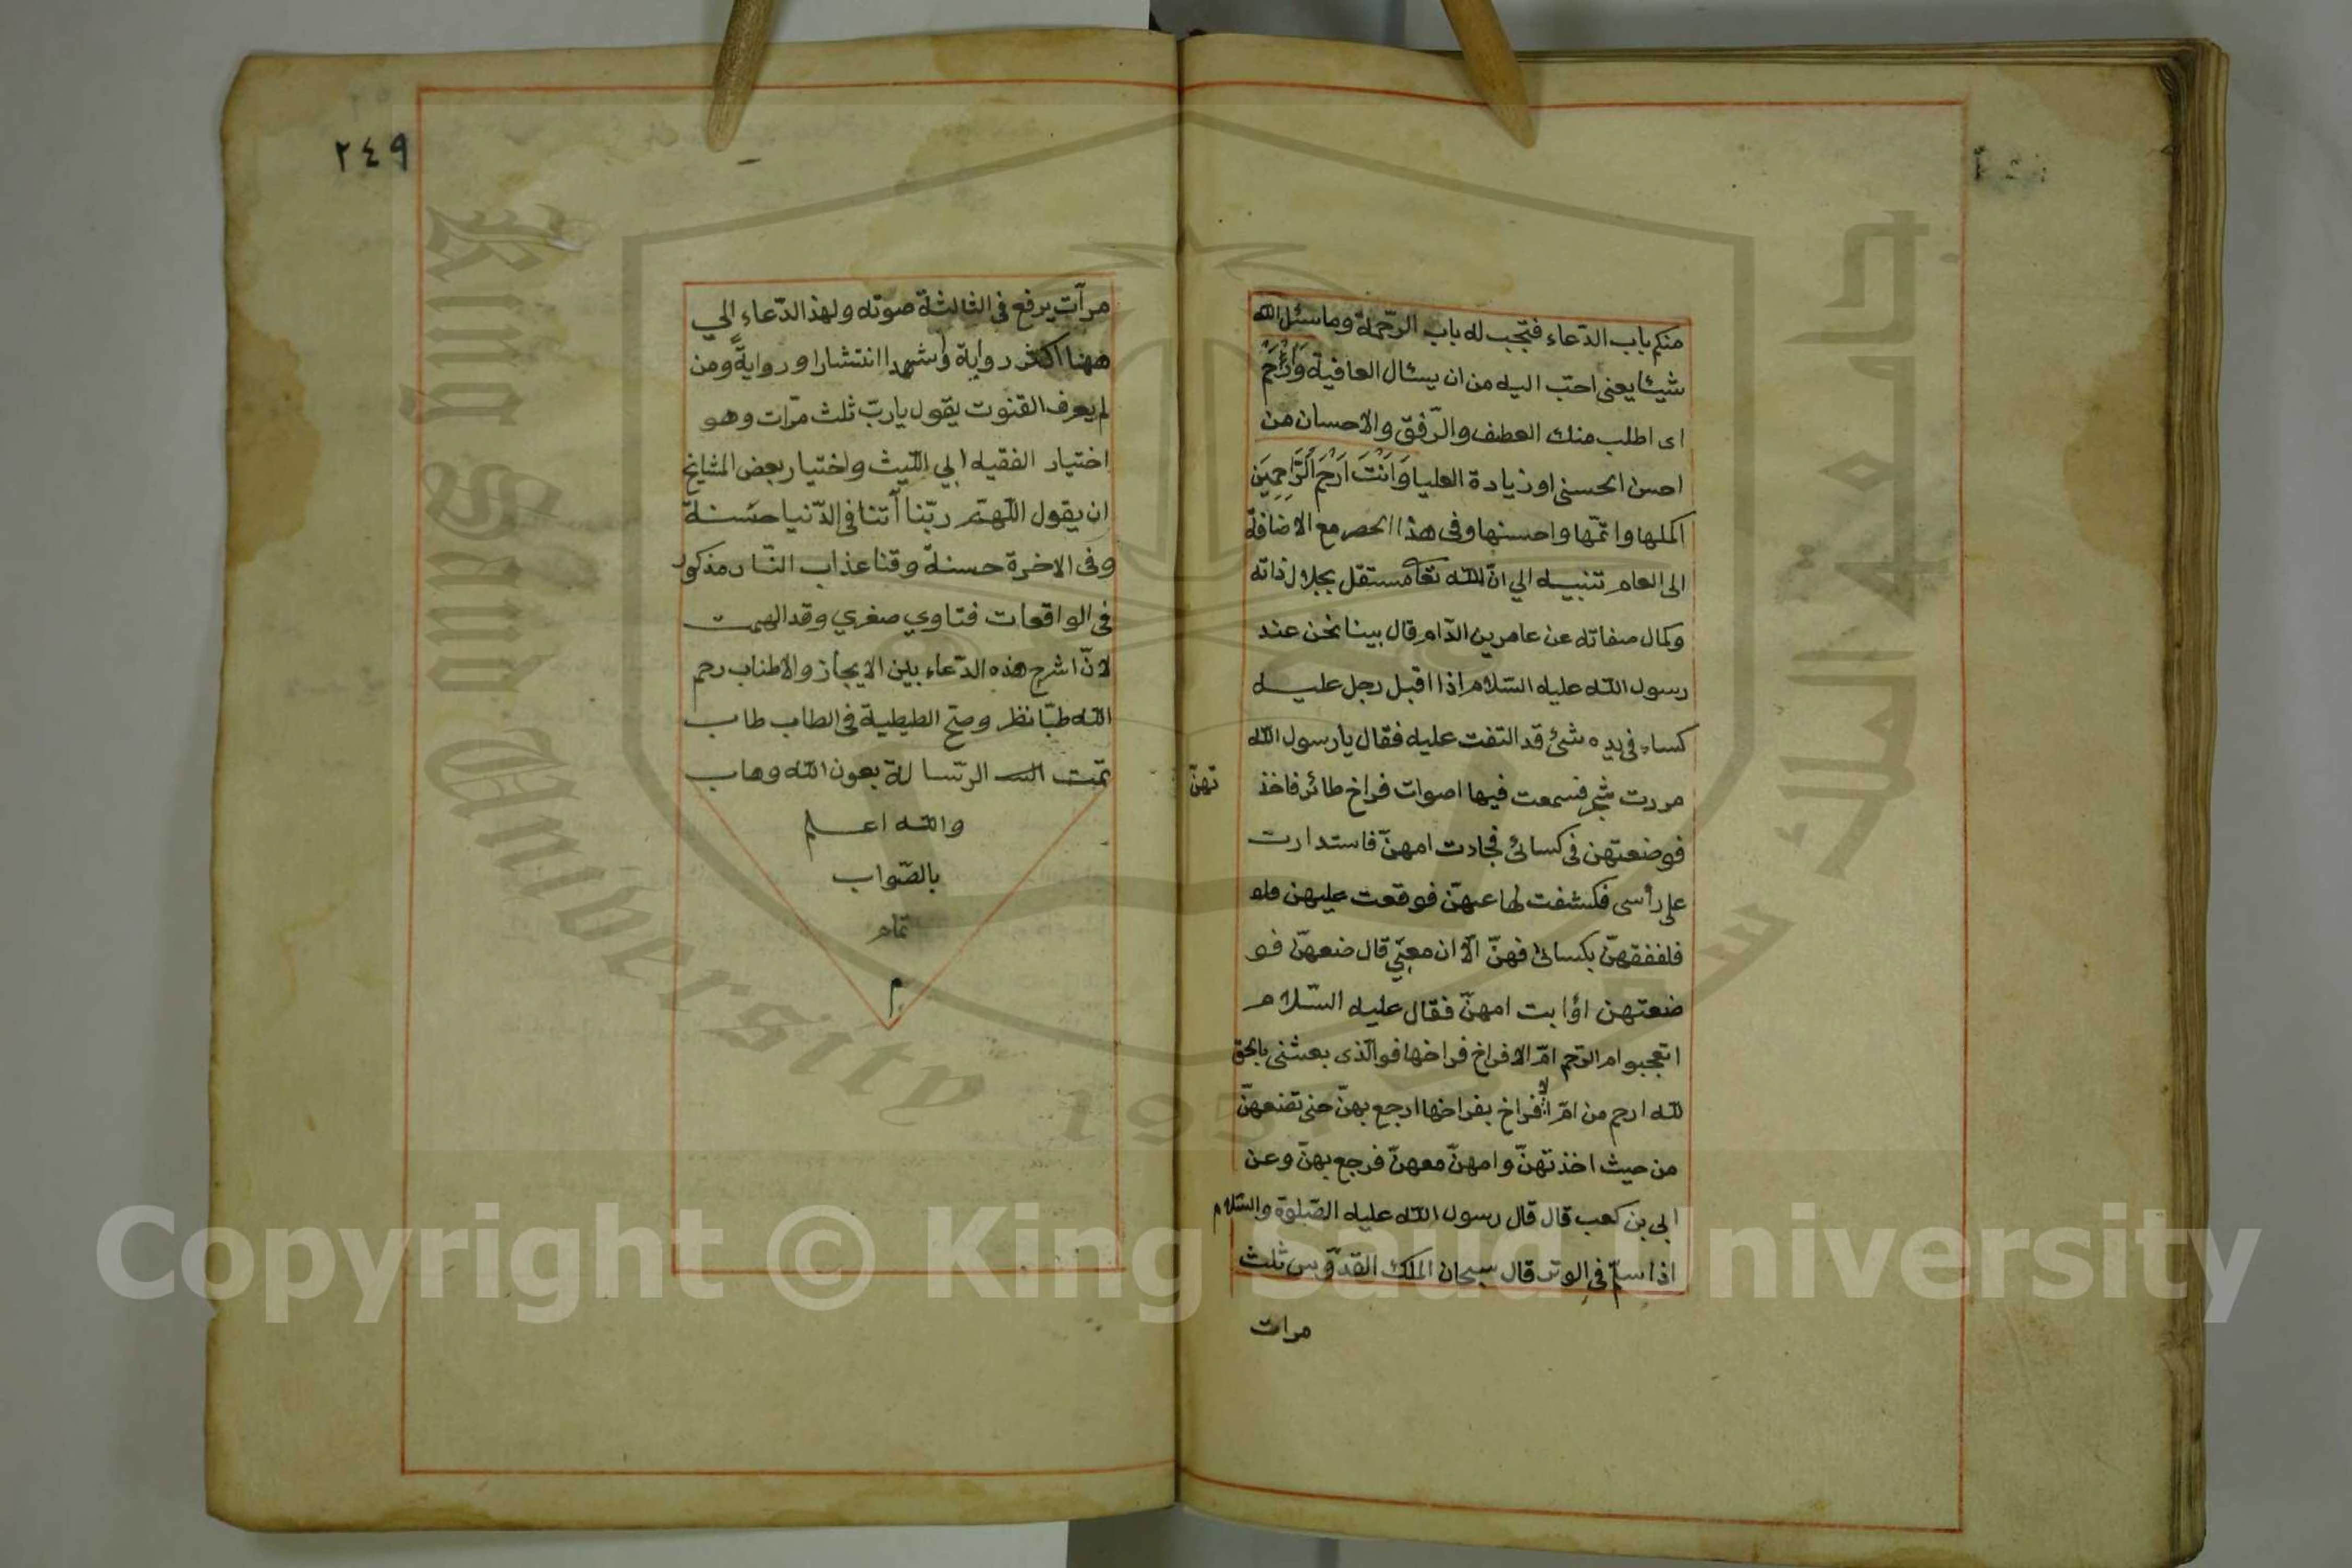 منكم باب الدّعاء فتجب له باب الرّحمة وما سئل الله
شيئا يعنى احبّ اليه من ان يسئال العافية وَارْحَمْ
اى اطلب منك العطف والرّفق والاحسان من
احسن الحسنى او زيادة العليا وَاَنْتَ اَرْحَمُ الرَّاحِمِينَ
اكملها واتمّها واحسنها وفى هذا الحصر مع الاضافة
الى العام تنبيه الي انّ الله تعا مستقل بجلال ذاته
وكمال صفاته عن عامر بن الدّام قال بينا نحن عند
رسول الله عليه السّلام اذا اقبل رجل عليه
كساء فى يده شئ قد التفت عليه فقال يا رسول الله
مررت شجر فسمعت فيها اصوات فراخ طائر فاخذ
تهنّ
فوضعتهن فى كسائى فجاءت امهنّ فاستدارت
على رأسى فكشفت لها عنهنّ فوقعت عليهن
فلففقهنّ بكسائى فهنّ الآن معى قال ضعهنّ فو
ضعتهن امهنّ فقال عليه السّلام
اتعجبوا م الرّحم امّ الافراخ فراخها فوالّذى بعثنى بالحق
لله ارحم من امّ الافراخ بفراخها ارجع بهنّ حتى تضعهنّ
من حيث اخذتهنّ وامهنّ معهنّ فرجع بهنّ وعن
ابي بن كعب قال قال رسول الله عليه الصّلوة والسّلام
اذا سلّم فى الوتر قال سبحان الملك القدّوس ثلث
مرات
٢٤٩
مرآت يرفع فى الثالثة صوته ولهذا الدّعاء الي
ههنا اكثر رواية واشهدا انتشارا ورواية ومن
لم يعرف القنوت يقول ياربّ ثلث مرّات وهو
اختيار الفقيه ابي اللّيث واختيار بعض المشايخ
ان يقول اللّهمّ ربّنا آتنا فى الدّنيا حسنة
وفى الاخرة حسنة وقنا عذاب النّار مذكور
فى الواقعات فتاوي صغري وقد الهمت
لانّ اشرح هذه الدّعاء بين الايجاز والاطناب رحم
الله طبّا نظر وصحّ الطيطية فى الطاب طاب
تمّت الرّسالة بعون الله وهاب
والله اعلم
بالصّواب
تمام
م
جامعة الملك سعود
King Saud University 1957
Copyright © King Saud University